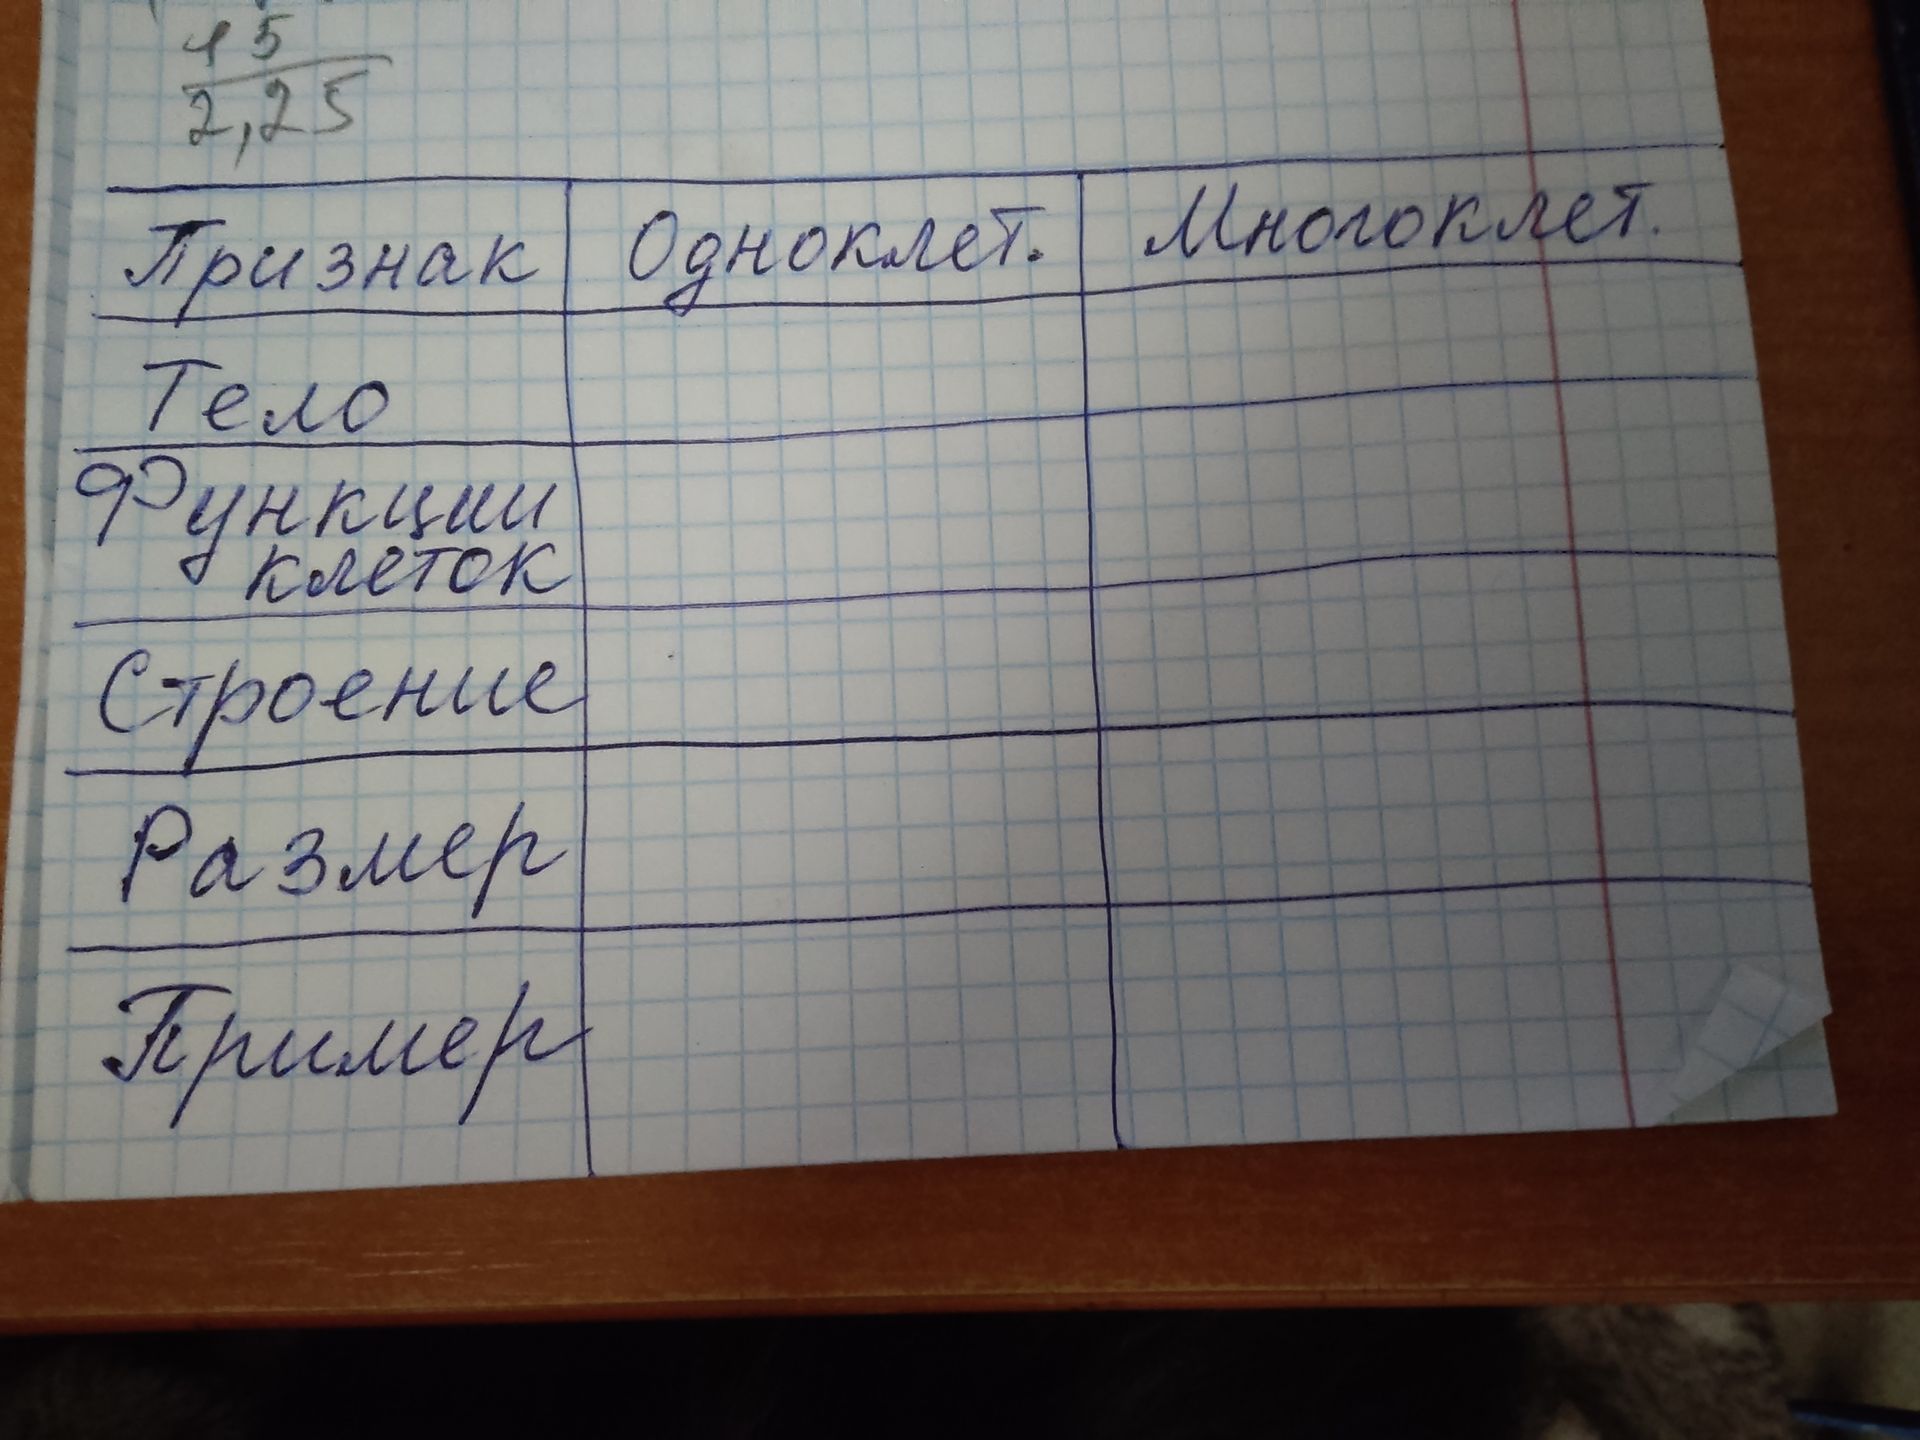 45
2,25
Признак Одноклет. Многоклет.
Тело
Функции
клеток
Строение
Размер
Пример